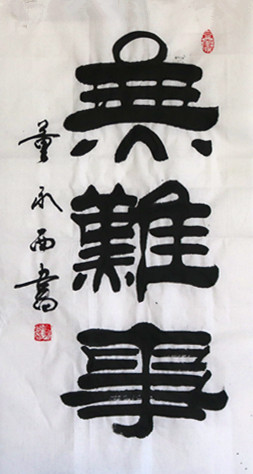 無難事
董永西書